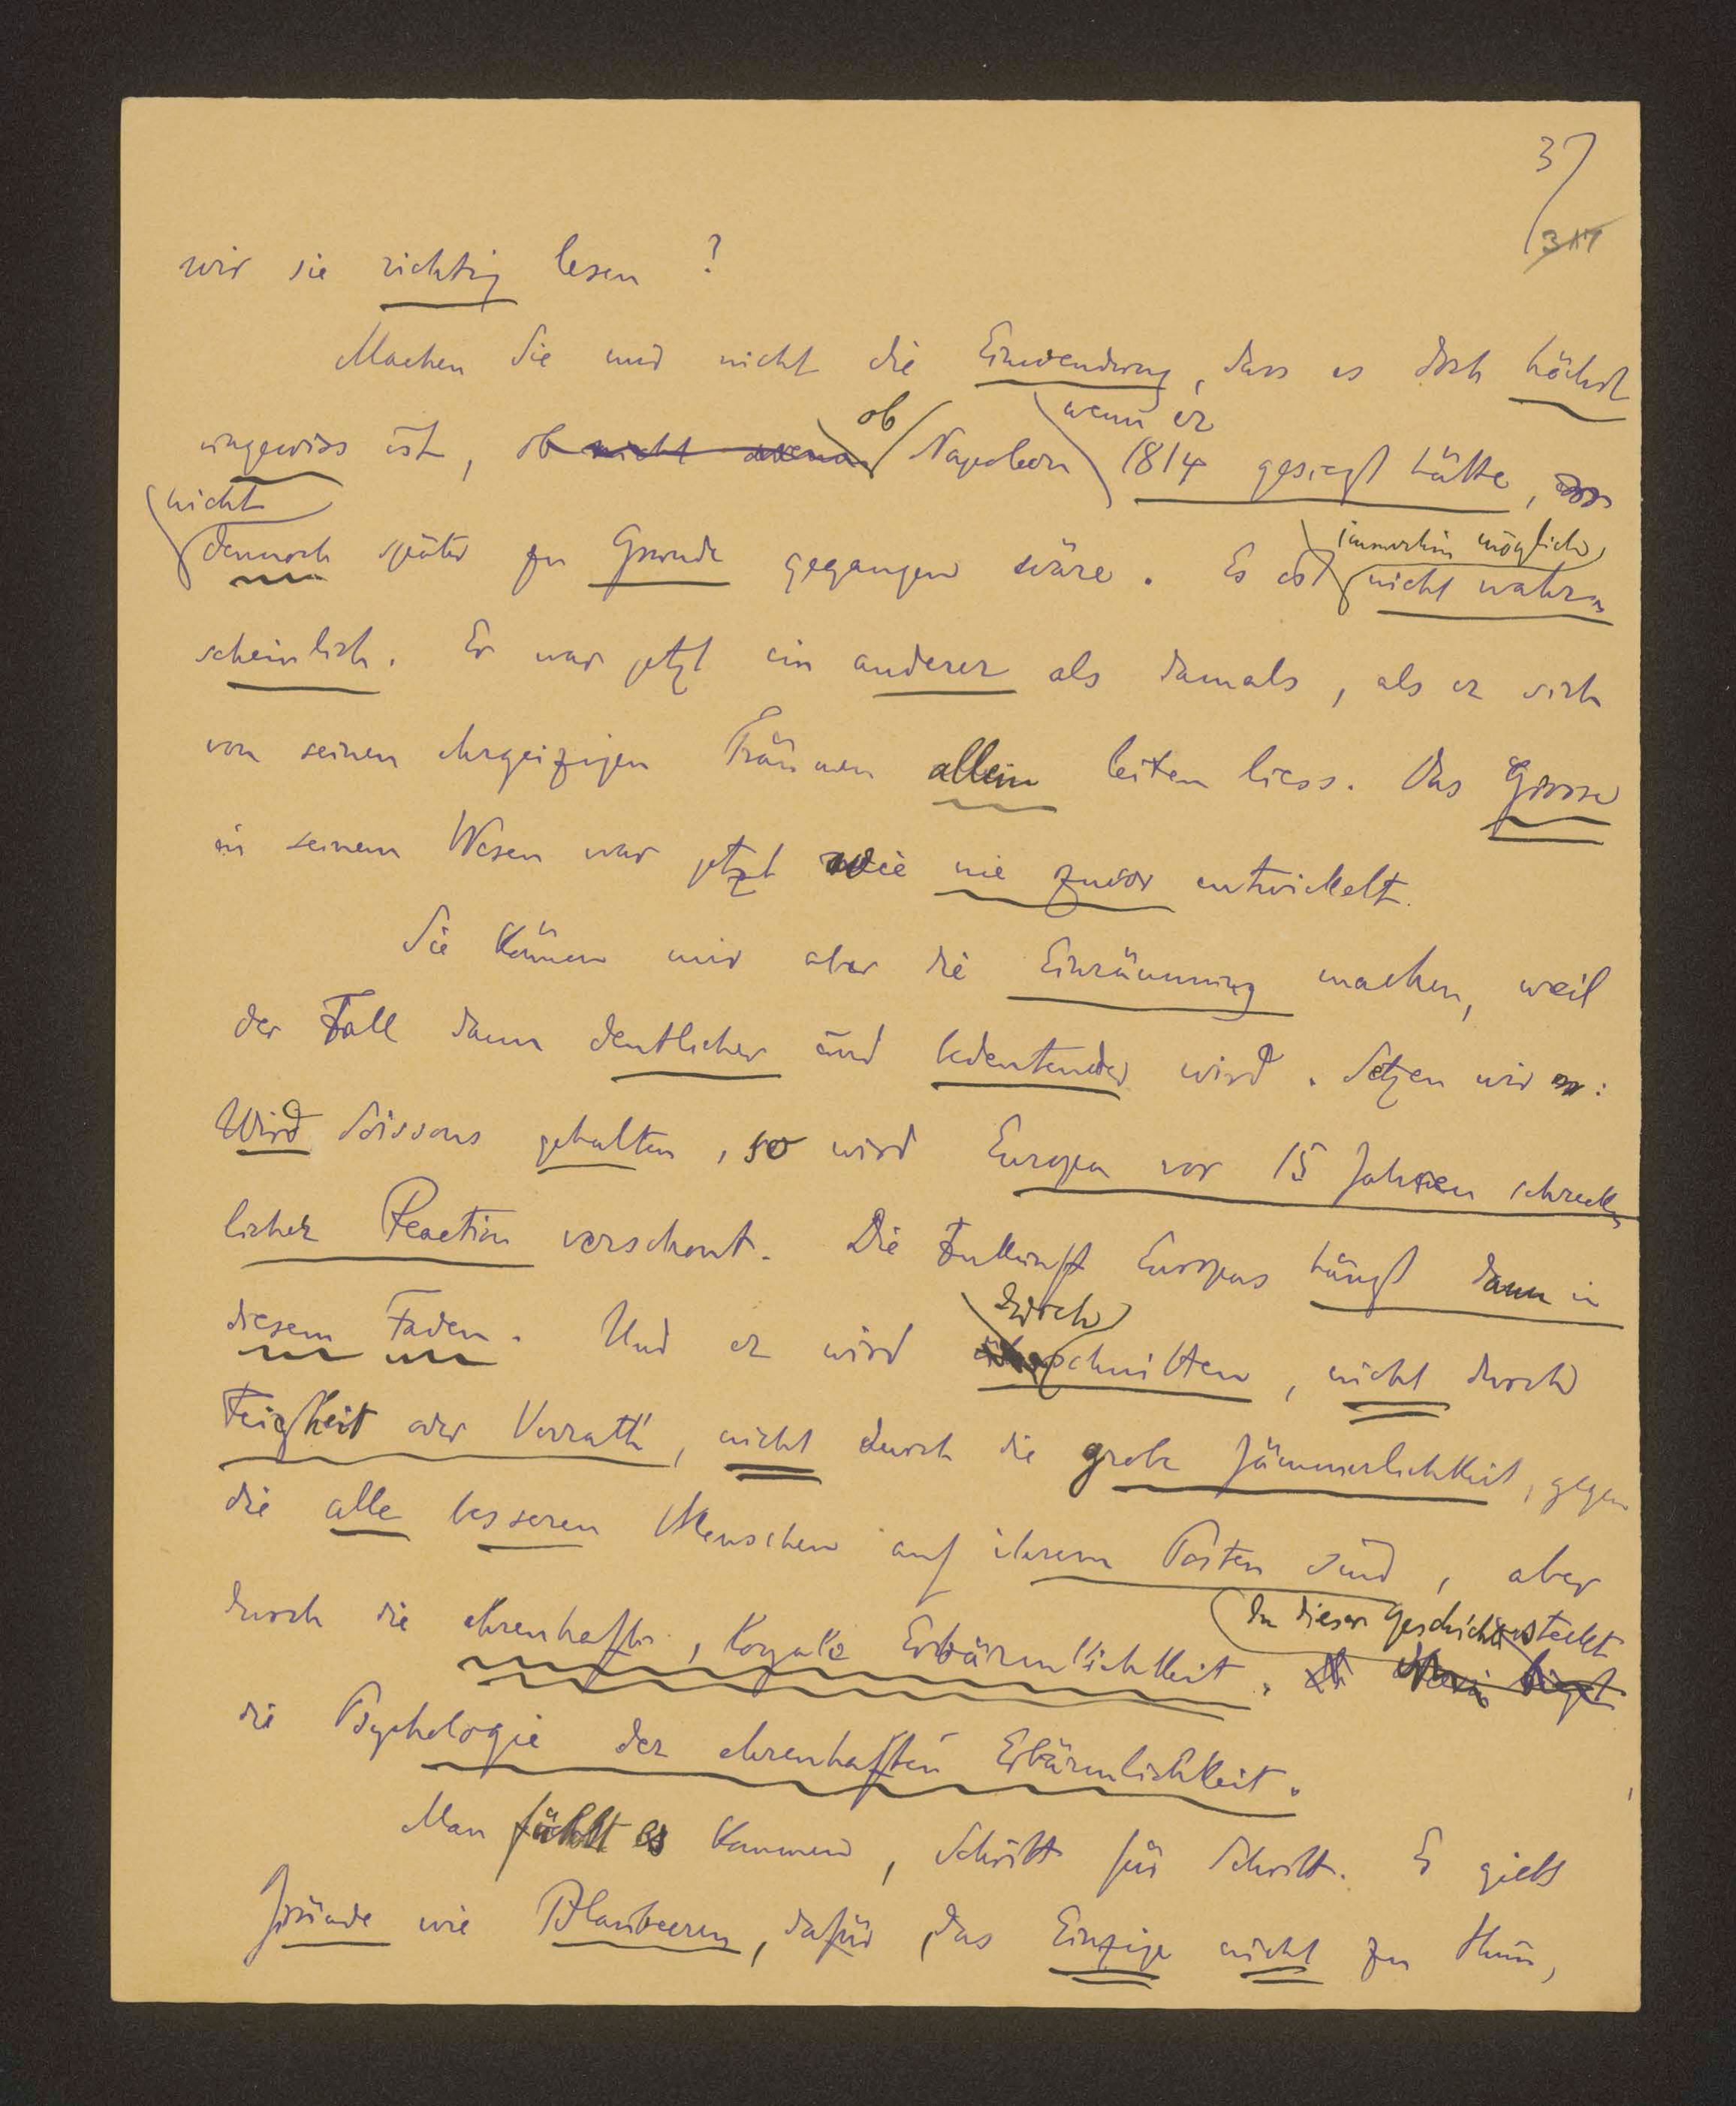 37
317
wir sie richtig lesen ?
Machen Sie mir nicht die Einwendung, dass es doch höchst
ob wenn er
ungewiss ist, ob nicht Napoleon 1814 gesiegt hätte,
nicht
immerhin möglich,
dennoch später zu Grunde gegangen wäre. Es ist nicht wahr-
scheinlich. Er war jetzt ein anderer als damals, als er sich
von seinen ehrgeizigen Träumen allein leiten liess. Das Grosse
in seinem Wesen war jetzt wie nie zuvor entwickelt.
Sie können mir aber die Einräumung machen, weil
der Fall dann deutlicher und bedeutender wird. Setzen wir :
Wird Soissons gehalten, so wird Europa vor 15 Jahren schreck-
licher Reaction verschont. Die Zukunft Europas hängt dann in
durch
diesem Faden. Und er wird schnitten, nicht durch
Feigheit oder Verrath, nicht durch die grobe Jämmerlichkeit, gegen
die alle besseren Menschen auf ihrem Posten sind, aber
In dieser Geschichte steckt
durch die ehrenhafte, loyale Erbärmlichkeit. liegt
die Psychologie der ehrenhaften Erbärmlichkeit.
Man fühlt es kommen, Schritt für Schritt. Es giebt
Gründe wie Blaubeeren, dafür, das Einzige nicht zu thun,